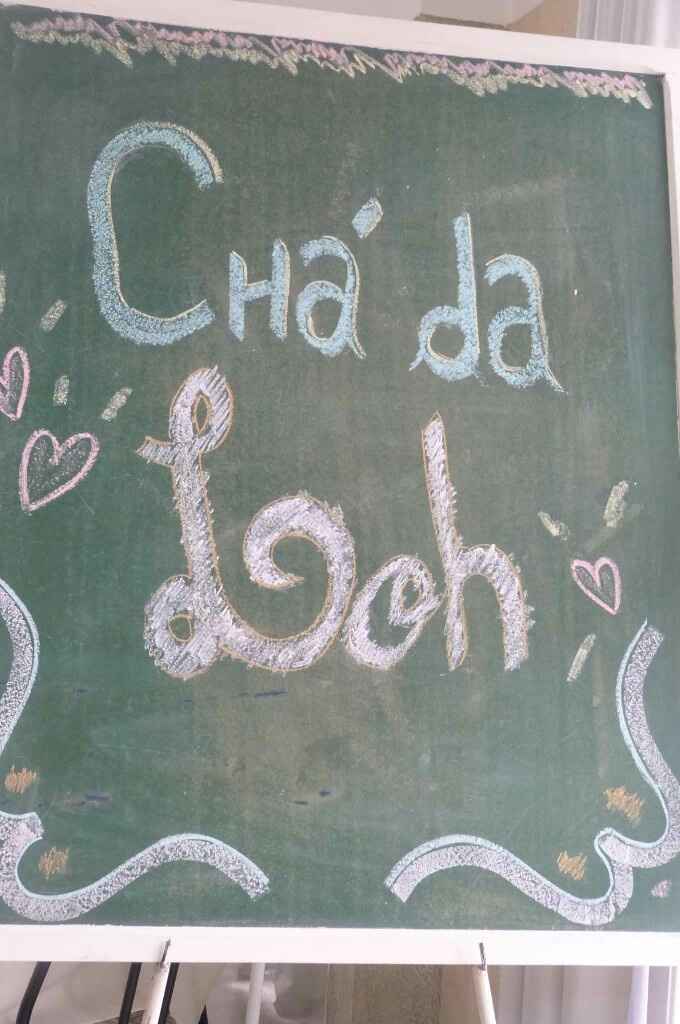 Chá da
Loh